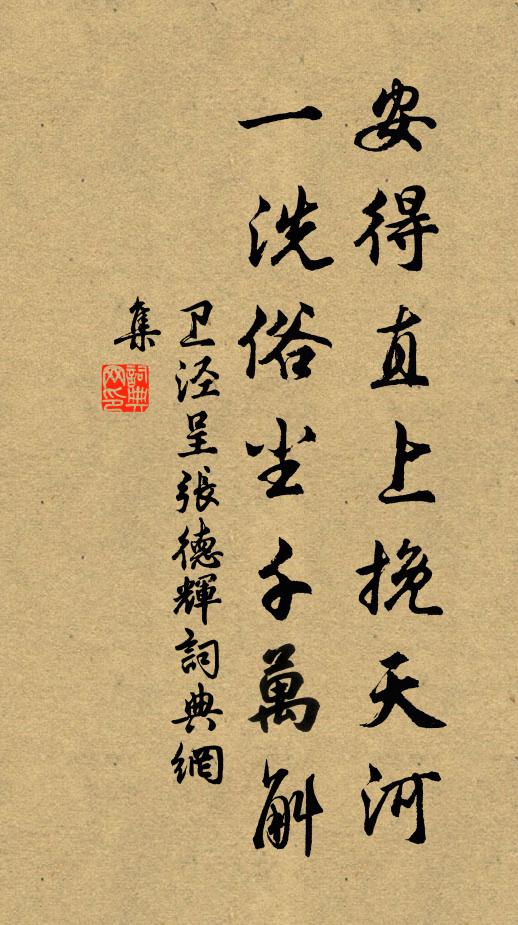 安得直上挽天河
一洗俗尘千萬斛
卫泾呈張德輝詞典網
集
詞典网印